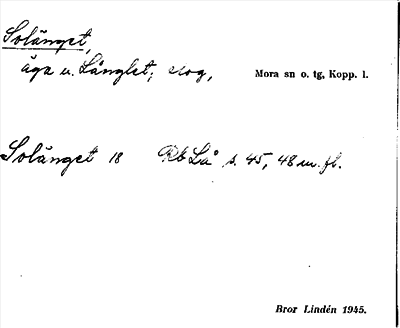 Solänget,
äga u. Långlet; skog, Mora sn o. tg, Kopp. l.
Solänget 18 Rb Lå s. 45, 48 m. fl.
Bror Lindén 1945.